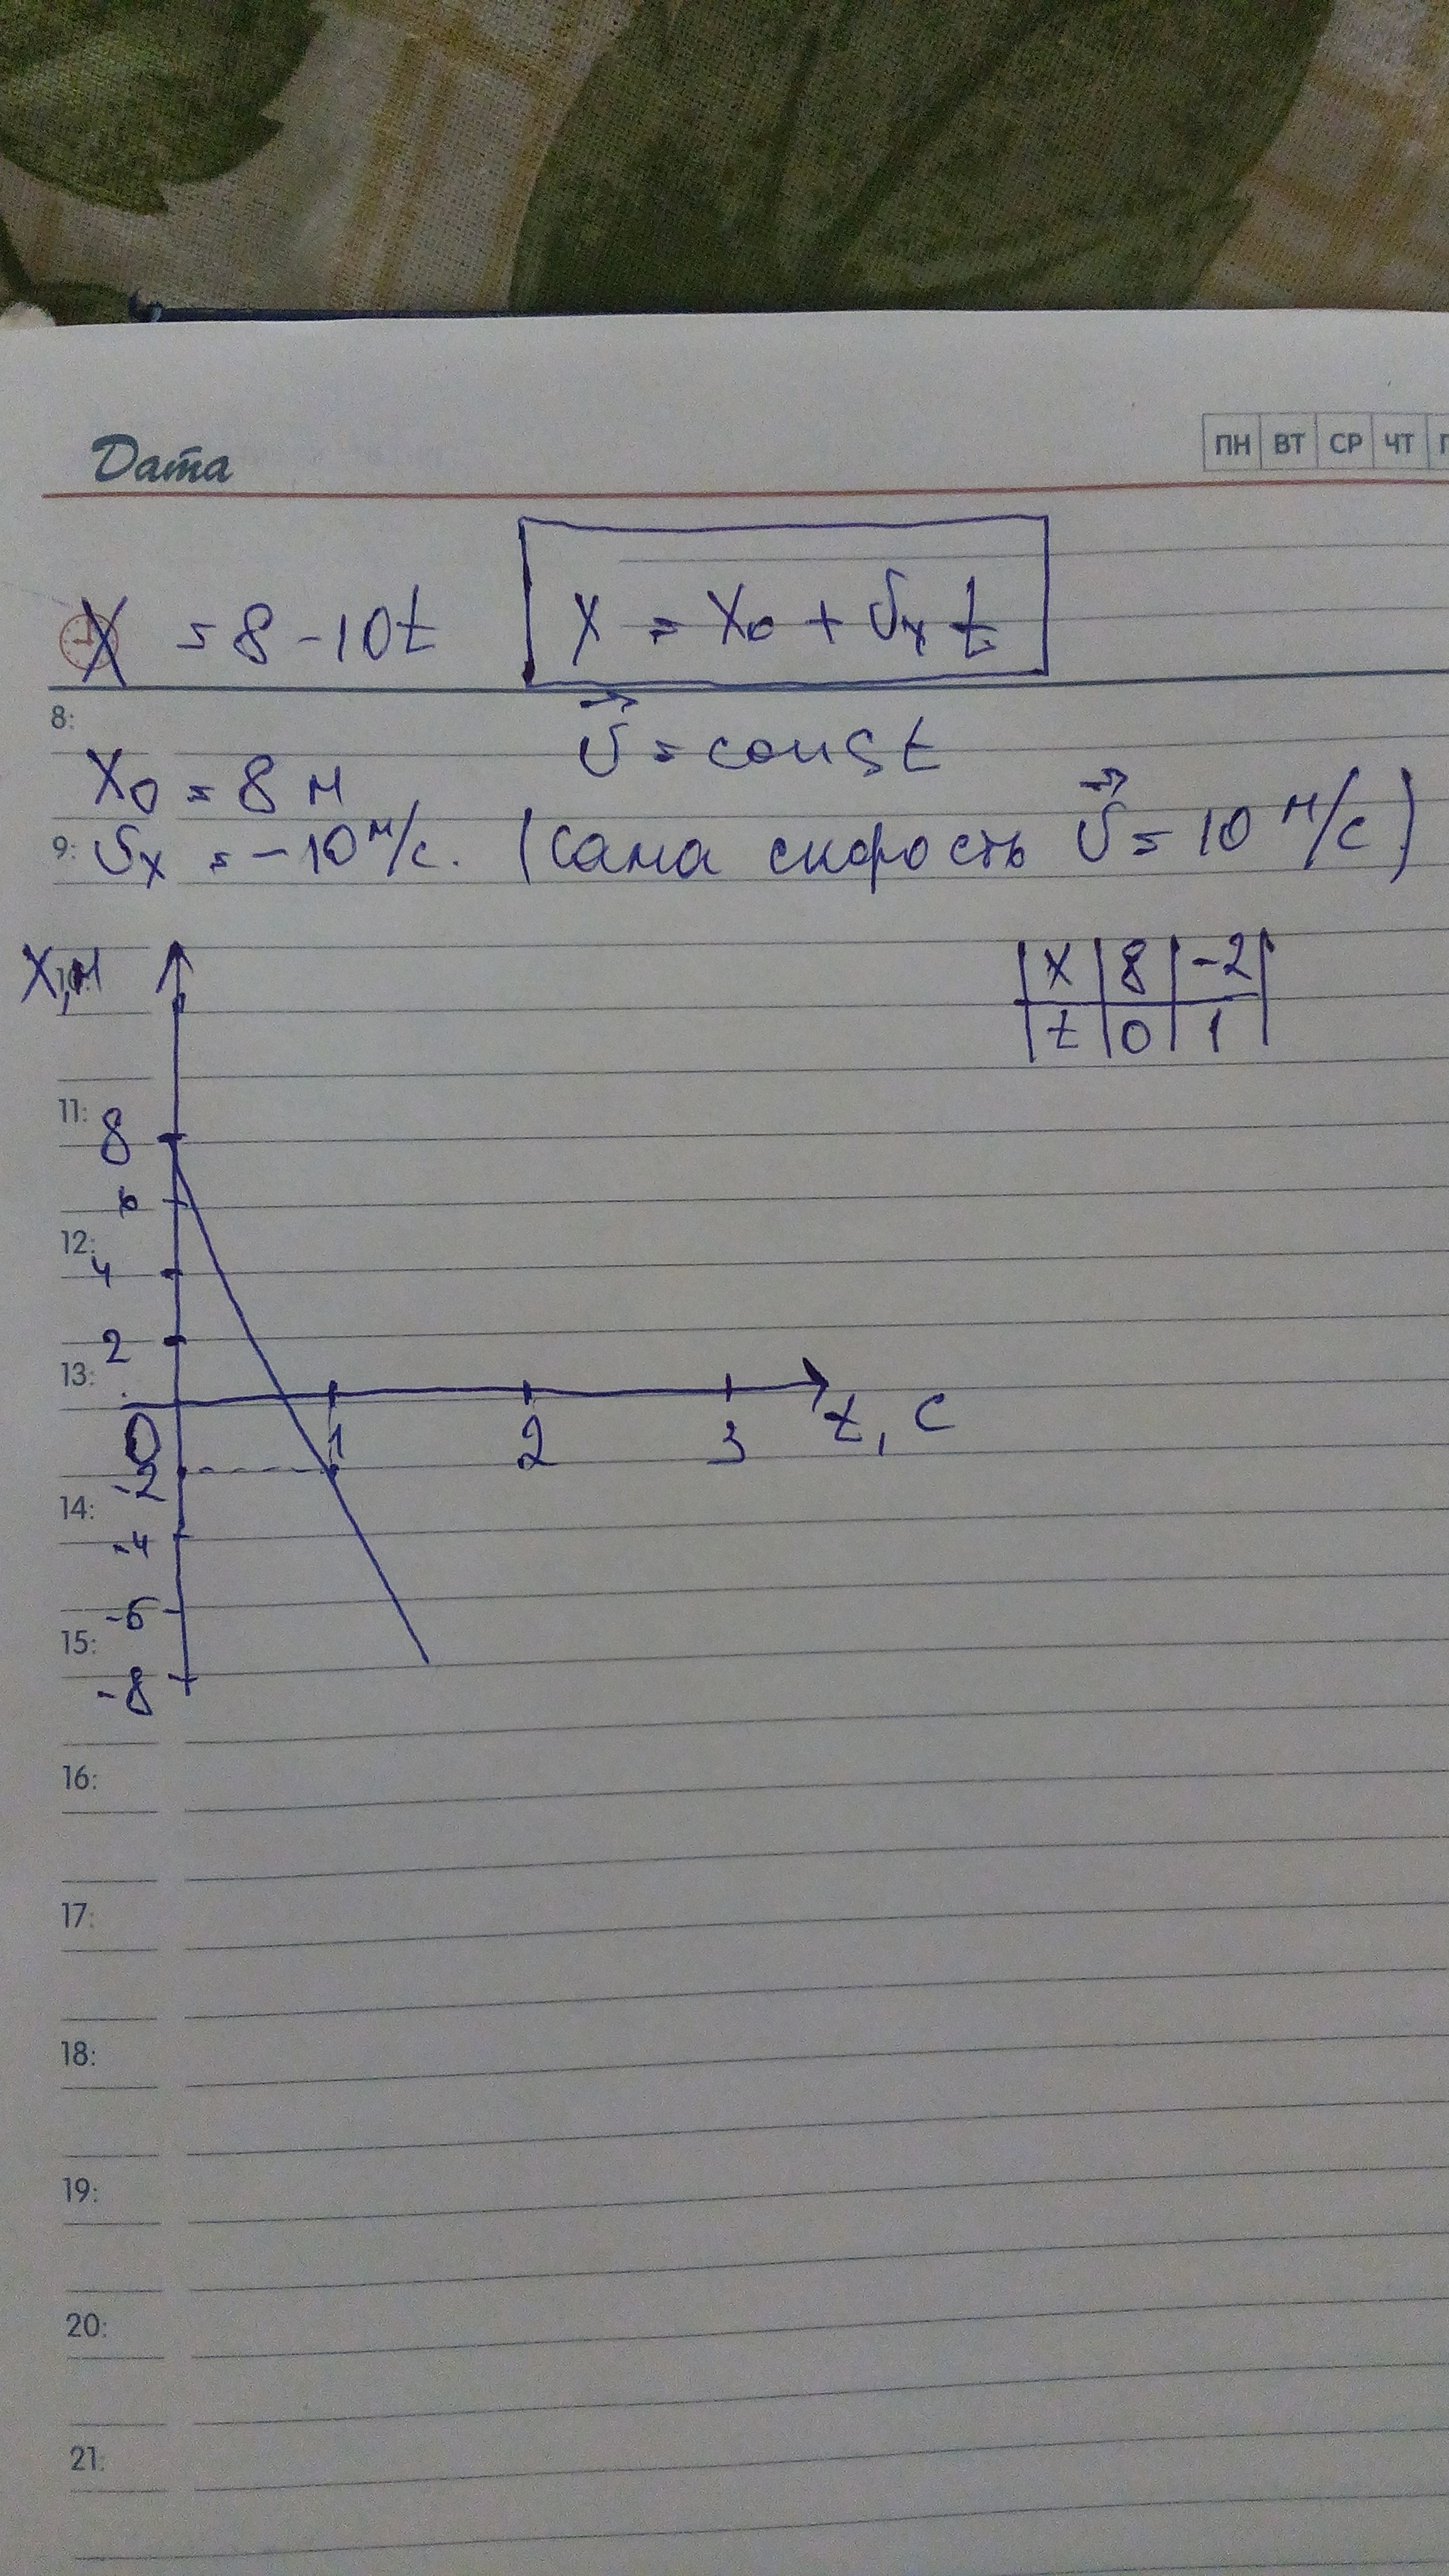 Дата ПН ВТ СР ЧТ
X = 8 - 10t x = x₀ + υₓ t
8:
x₀ = 8 м υ⃗ = const
9: υₓ = -10 м/с. (сама скорость υ⃗ = 10 м/с)
X, м
x 8 -2
t 0 1
11: 8
6
12: 4
2
13:
0 1 2 3 t, c
-2
14:
-4
-6
15:
-8
16:
17:
18:
19:
20:
21: